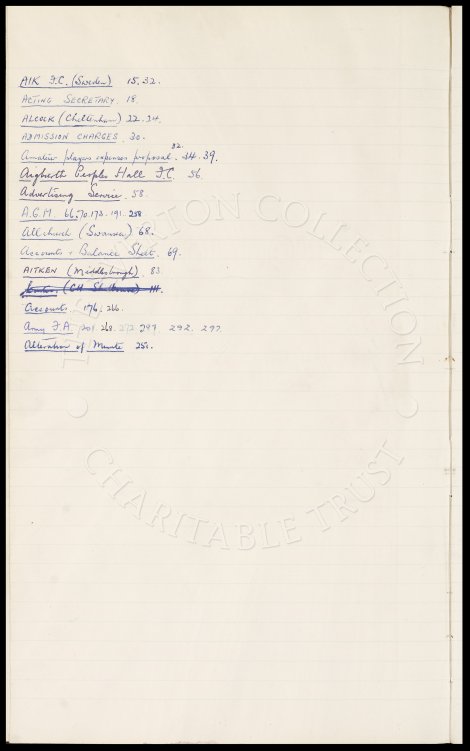 AIK F.C. (Sweden) 15.32.
ACTING SECRETARY 18.
ALCOCK (Cheltenham) 22.24.
ADMISSION CHARGES. 30.
32.
Amateur players expenses proposal. 34. 39.
Aigburth Peoples Hall F.C. 56.
Advertising Service. 58.
A.G.M. 66.70.173.191.258
Allchurch (Swansea) 68.
Accounts + Balance Sheet. 69.
AITKEN (Middlesbrough) 83.
111.
Accounts 176. 266.
Army F.A. 201 268. 272 287. 292. 297
Alteration of Minute 251.
THE EVERTON COLLECTION
CHARITABLE TRUST